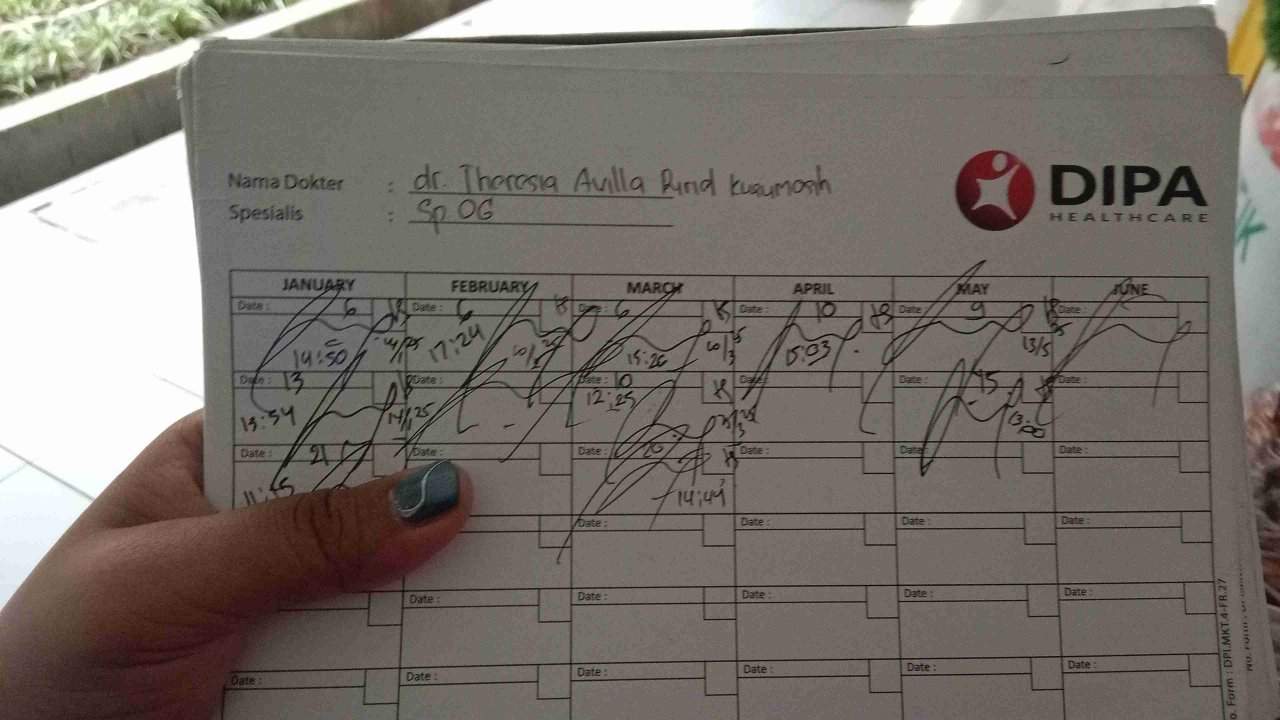 DIPA
HEALTHCARE
Nama Dokter : dr. Theresia Avilla Ririd Kusumosih
Spesialis : Sp OG
JANUARY FEBRUARY MARCH APRIL MAY JUNE
Date : 6 Date : 6 Date : 6 Date : 10 Date : 9 Date :
14:50 17:24 10/2 25 15:26 10/3 15:03 13/5
Date : 13 Date : Date : 10 Date : Date : 15 Date :
15:54 14/1 25 12:25 13:00
Date : 21 Date : Date : 20 Date : Date : Date :
11:15 14:44
Date : Date : Date : Date :
Date : Date : Date : Date : Date :
Date : Date : Date : Date : Date : Date :
No. Form : DPI.MKT.4-FR.27